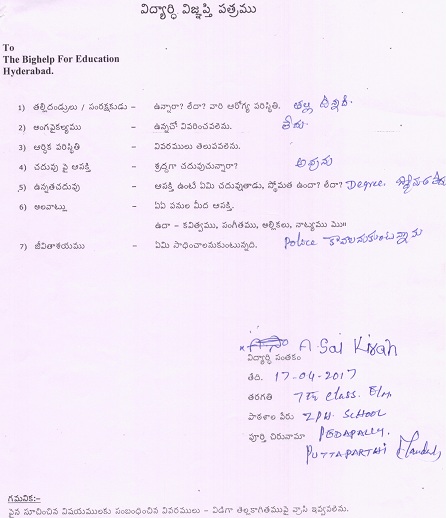 విద్యార్ధి విజ్ఞప్తి పత్రము
To
The Bighelp For Education
Hyderabad.
1) తల్లిదండ్రులు / సంరక్షకుడు – ఉన్నారా? లేదా? వారి ఆరోగ్య పరిస్థితి. తల్లి
2) అంగవైకల్యము – ఉన్నచో వివరించవలెను. లేదు.
3) ఆర్ధిక పరిస్థితి – వివరములు తెలుపవలెను.
4) చదువు పై ఆసక్తి – శ్రద్ధగా చదువుచున్నారా? అవును
5) ఉన్నతచదువు – ఆసక్తి ఉంటే ఏమి చదువుతాడు, స్ధోమత ఉందా? లేదా? Degree.
6) అలవాట్లు – ఏఏ పనుల మీద ఆసక్తి.
ఉదా – కవిత్వము, సంగీతము, అల్లికలు, నాట్యము మొ॥
7) జీవితాశయము – ఏమి సాధించాలనుకుంటున్నది. Police కావాలనుకుంటున్నాను
A. Sai Kiran
విద్యార్ధి సంతకం
తేది. 17-04-2017
తరగతి 7th Class. E/m
పాఠశాల పేరు ZPH. SCHOOL
పూర్తి చిరునామా PEDAPALLY.
PUTTAPARTHI (Mandal),
గమనిక:–
పైన సూచించిన విషయములకు సంబంధించిన వివరములు – విడిగా తెల్లకాగితముపై వ్రాసి ఇవ్వవలెను.